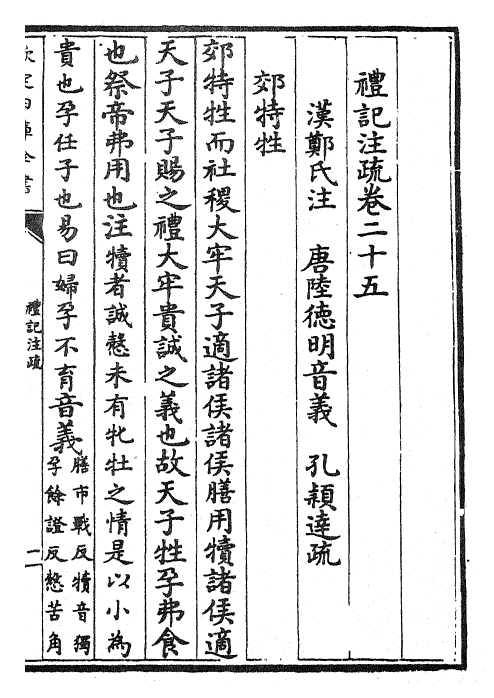 禮記注疏卷二十五
漢鄭氏注　唐陸德明音義　孔穎達疏
郊特牲
郊特牲而社稷大牢天子適諸侯諸侯膳用犢諸侯適
天子天子賜之禮大牢貴誠之義也故天子牲孕弗食
也祭帝弗用也注犢者誠慤未有牝牡之情是以小為
貴也孕任子也易曰婦孕不育音義膳市戰反犢音獨
孕餘證反慤苦角
欽定四庫全書
禮記注疏
一